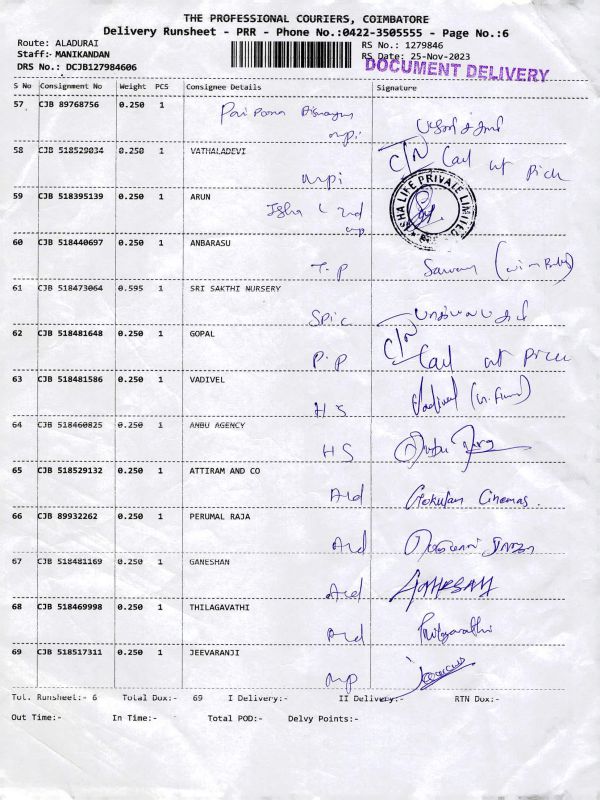 THE PROFESSIONAL COURIERS, COIMBATORE
Delivery Runsheet - PRR - Phone No.:0422-3505555 - Page No.:6
Route: ALADURAI
RS No.: 1279846
Staff:- MANIKANDAN
RS Date: 25-Nov-2023
DRS No.: DCJB127984606
DOCUMENT DELIVERY
S No Consignment No Weight PCS Consignee Details Signature
57 CJB 89768756 0.250 1
58 CJB 518529034 0.250 1 VATHALADEVI C/N Call at Pick
59 CJB 518395139 0.250 1 ARUN
Isha
ISHA LIFE PRIVATE LIMITED
60 CJB 518440697 0.250 1 ANBARASU
T.P
61 CJB 518473064 0.595 1 SRI SAKTHI NURSERY
Spic
62 CJB 518481648 0.250 1 GOPAL C/N
P.P Call at Pick
63 CJB 518481586 0.250 1 VADIVEL
HS Vadivel
64 CJB 518460825 0.250 1 ANBU AGENCY
HS
65 CJB 518529132 0.250 1 ATTIRAM AND CO
Ald Gokulam Cinemas.
66 CJB 89932262 0.250 1 PERUMAL RAJA
Ald
67 CJB 518481169 0.250 1 GANESHAN
Ald
68 CJB 518469998 0.250 1 THILAGAVATHI
Ald
69 CJB 518517311 0.250 1 JEEVARANJI
mp
Tot. Runsheet:- 6 Total Dox:- 69 I Delivery:- II Delivery:- RTN Dox:-
Out Time:- In Time:- Total POD:- Delvy Points:-